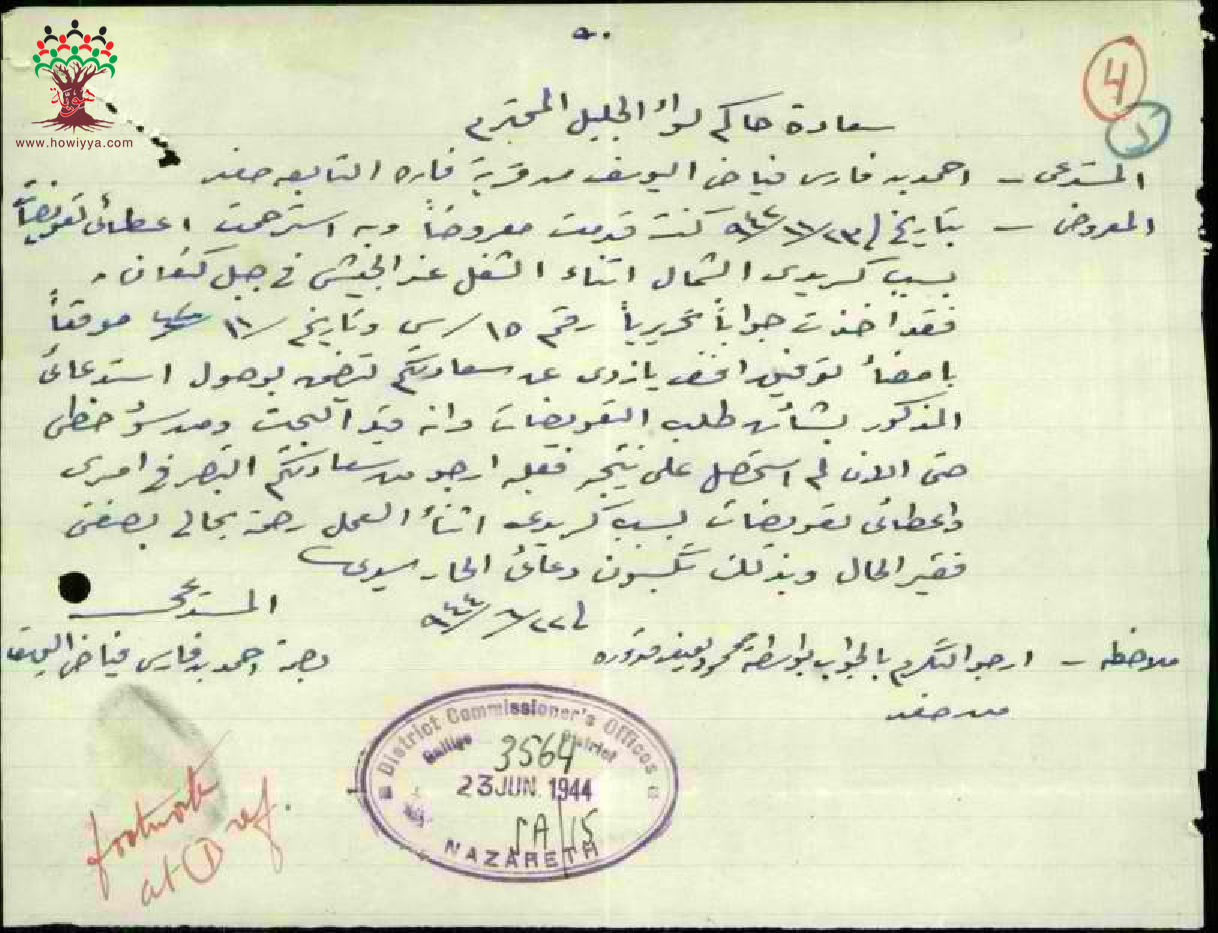 4
www.howiyya.com
سعادة حاكم لواء الجليل المحترم
المستدعي - احمد بن فارس فياض اليوسف من قرية فاره التابعه صفد
المعروض - بتاريخ كنت قدمت معروضاً وبه استرحمت اعطائي تعويضاً
بسبب كسر يدي الشمال اثناء الشغل عند الجيش في جبل كنعان
فقد اخذت جواباً تحريرياً رقم ١٥/س وتاريخ موقعاً
بامضاء توفيق افندي يازدي عن سعادتكم تتضمن بوصول استدعائي
المذكور بشأن طلب التعويضات وانه قيد البحث ومن سوء حظي
حتى الان لم استحصل على نتيجه ارجو من سعادتكم التبصر في امري
واعطائي تعويضات بسبب كسر يدي اثناء العمل رحمة بحالي بصفتي
فقير الحال وبذلك تكسبون دعائي
في ٢٢/٦/٩٤٤
المستدعي
بصمة احمد بن فارس فياض اليوسف
ملاحظه - ارجو التكرم بالجواب بواسطة محمود قدوره
من صفد
District Commissioner's Offices
Galilee District
3564
23 JUN. 1944
SA/15
NAZARETH
footnote
at ① ref.